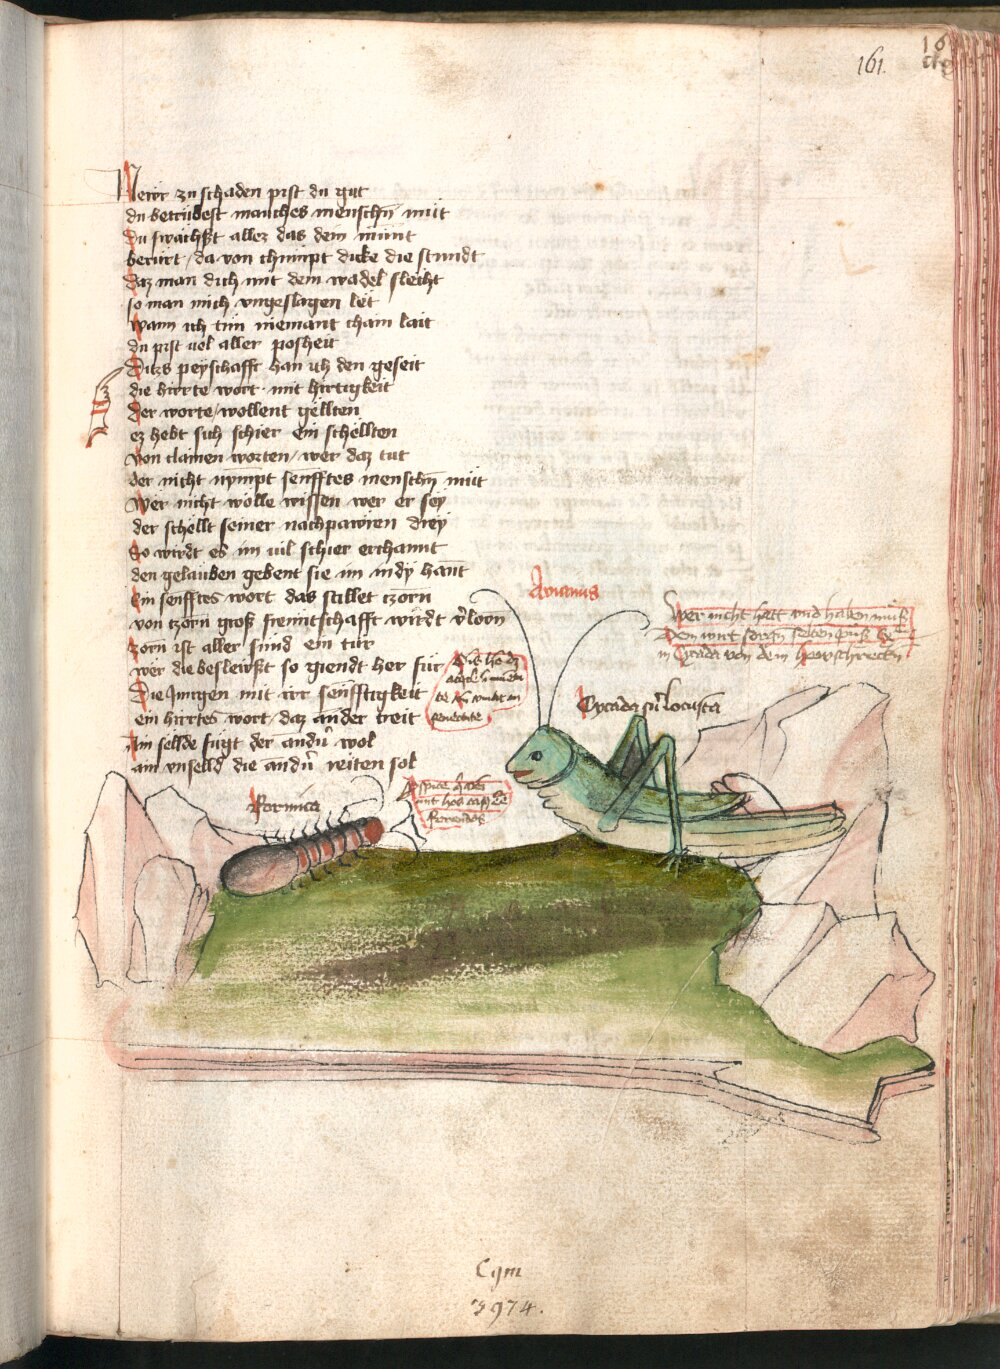 161.
Newr zu schaden pist du gut
du betrubest manches menschn mut
Du swachst allez das dein munt
berurt / da von chumpt dicke die stundt
daz man dich mit dem wadel slecht
so man mich ungeslagen let
wann ich tun niemant chain lait
du pist vol aller posheit
Ditzs peyschafft han ich den geseit
die hirte wort mit hirtigkeit
Der worte / wollent gellten
ez hebt sich schier ein schellten
von clainen worten / wer daz tut
der nicht nympt senfftes menschn mut
Wer nicht wolle wissen wer er sey
der schellt seiner nachpawren drey
So wirdt es im vil schier erchannt
den gelauben gebent sie im indy hant
Ein senfftes wort das stillet czorn
von czorn groß freuntschafft wirdt vloorn
zorn ist aller sund ein tur
wer die besleust so giendt her fur
Die Jungen mit irr senfftigkeit
ein hirtes wort / daz ander treit
Ain sellde fugt der andn wol
ain unselld die andn reiten sol
Avianus
Wer nicht hat und haben muß
Dem wirt sorgn selten puß
in Cycada von dem hoerschreckn
Cycada sin locusta
Formica
Cgm
3974.